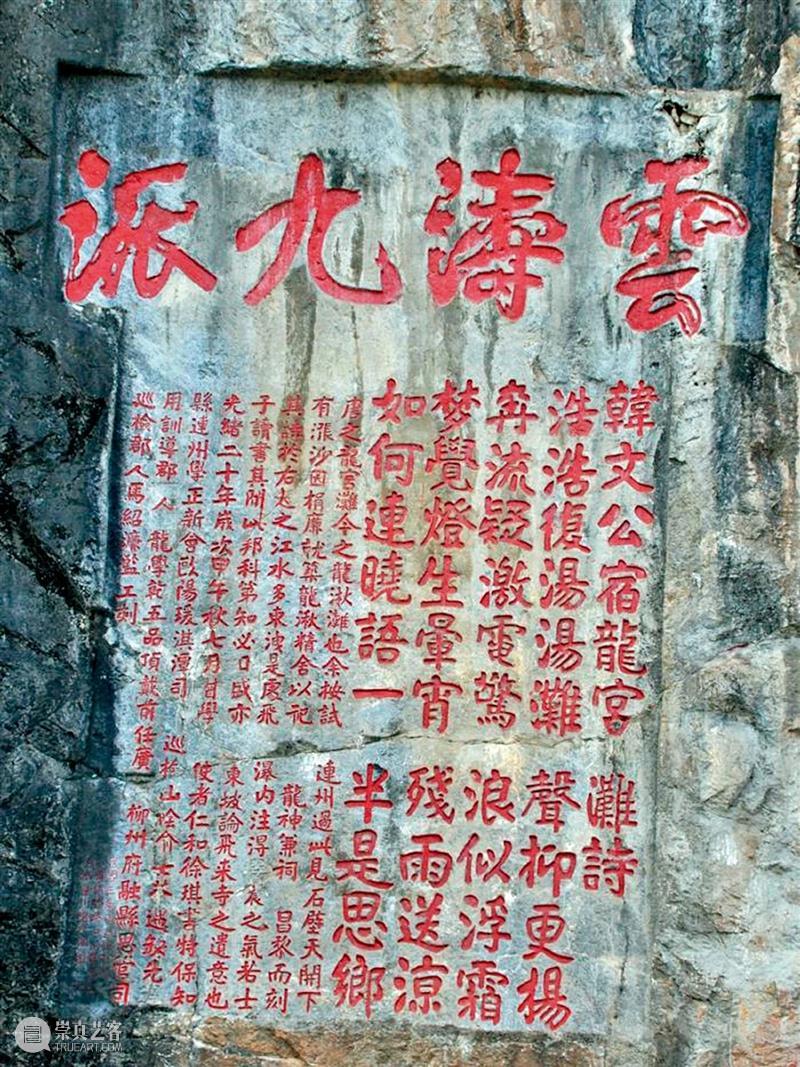 雲濤九派
韓文公宿龍宮灘詩
浩浩復湯湯灘聲抑更揚
奔流疑激電驚浪似浮霜
梦覺燈生暈宵殘雨送涼
如何連曉語一半是思鄉
唐之龍宮灘今之龍湫灘也余按試連州過此見石壁天開下
有漲沙因捐廉就築龍湫精舍以祀龍神兼祠昌黎而刻
其詩於右夫之江水多東洩是處飛瀑内注得之氣若士
子讀書其間此邦科第知必日盛亦東坡論飛来寺之遺意也
光緒二十年歲次甲午秋七月督學使者仁和徐琪書特保知
縣連州學正新會歐陽瑗湛潭司巡檢山陰士
用訓導郡人龍學乾五品頂戴前任廣柳州府融縣思管司
巡檢郡人馬紹濂監工刻
崇真艺客
TRUEART.COM